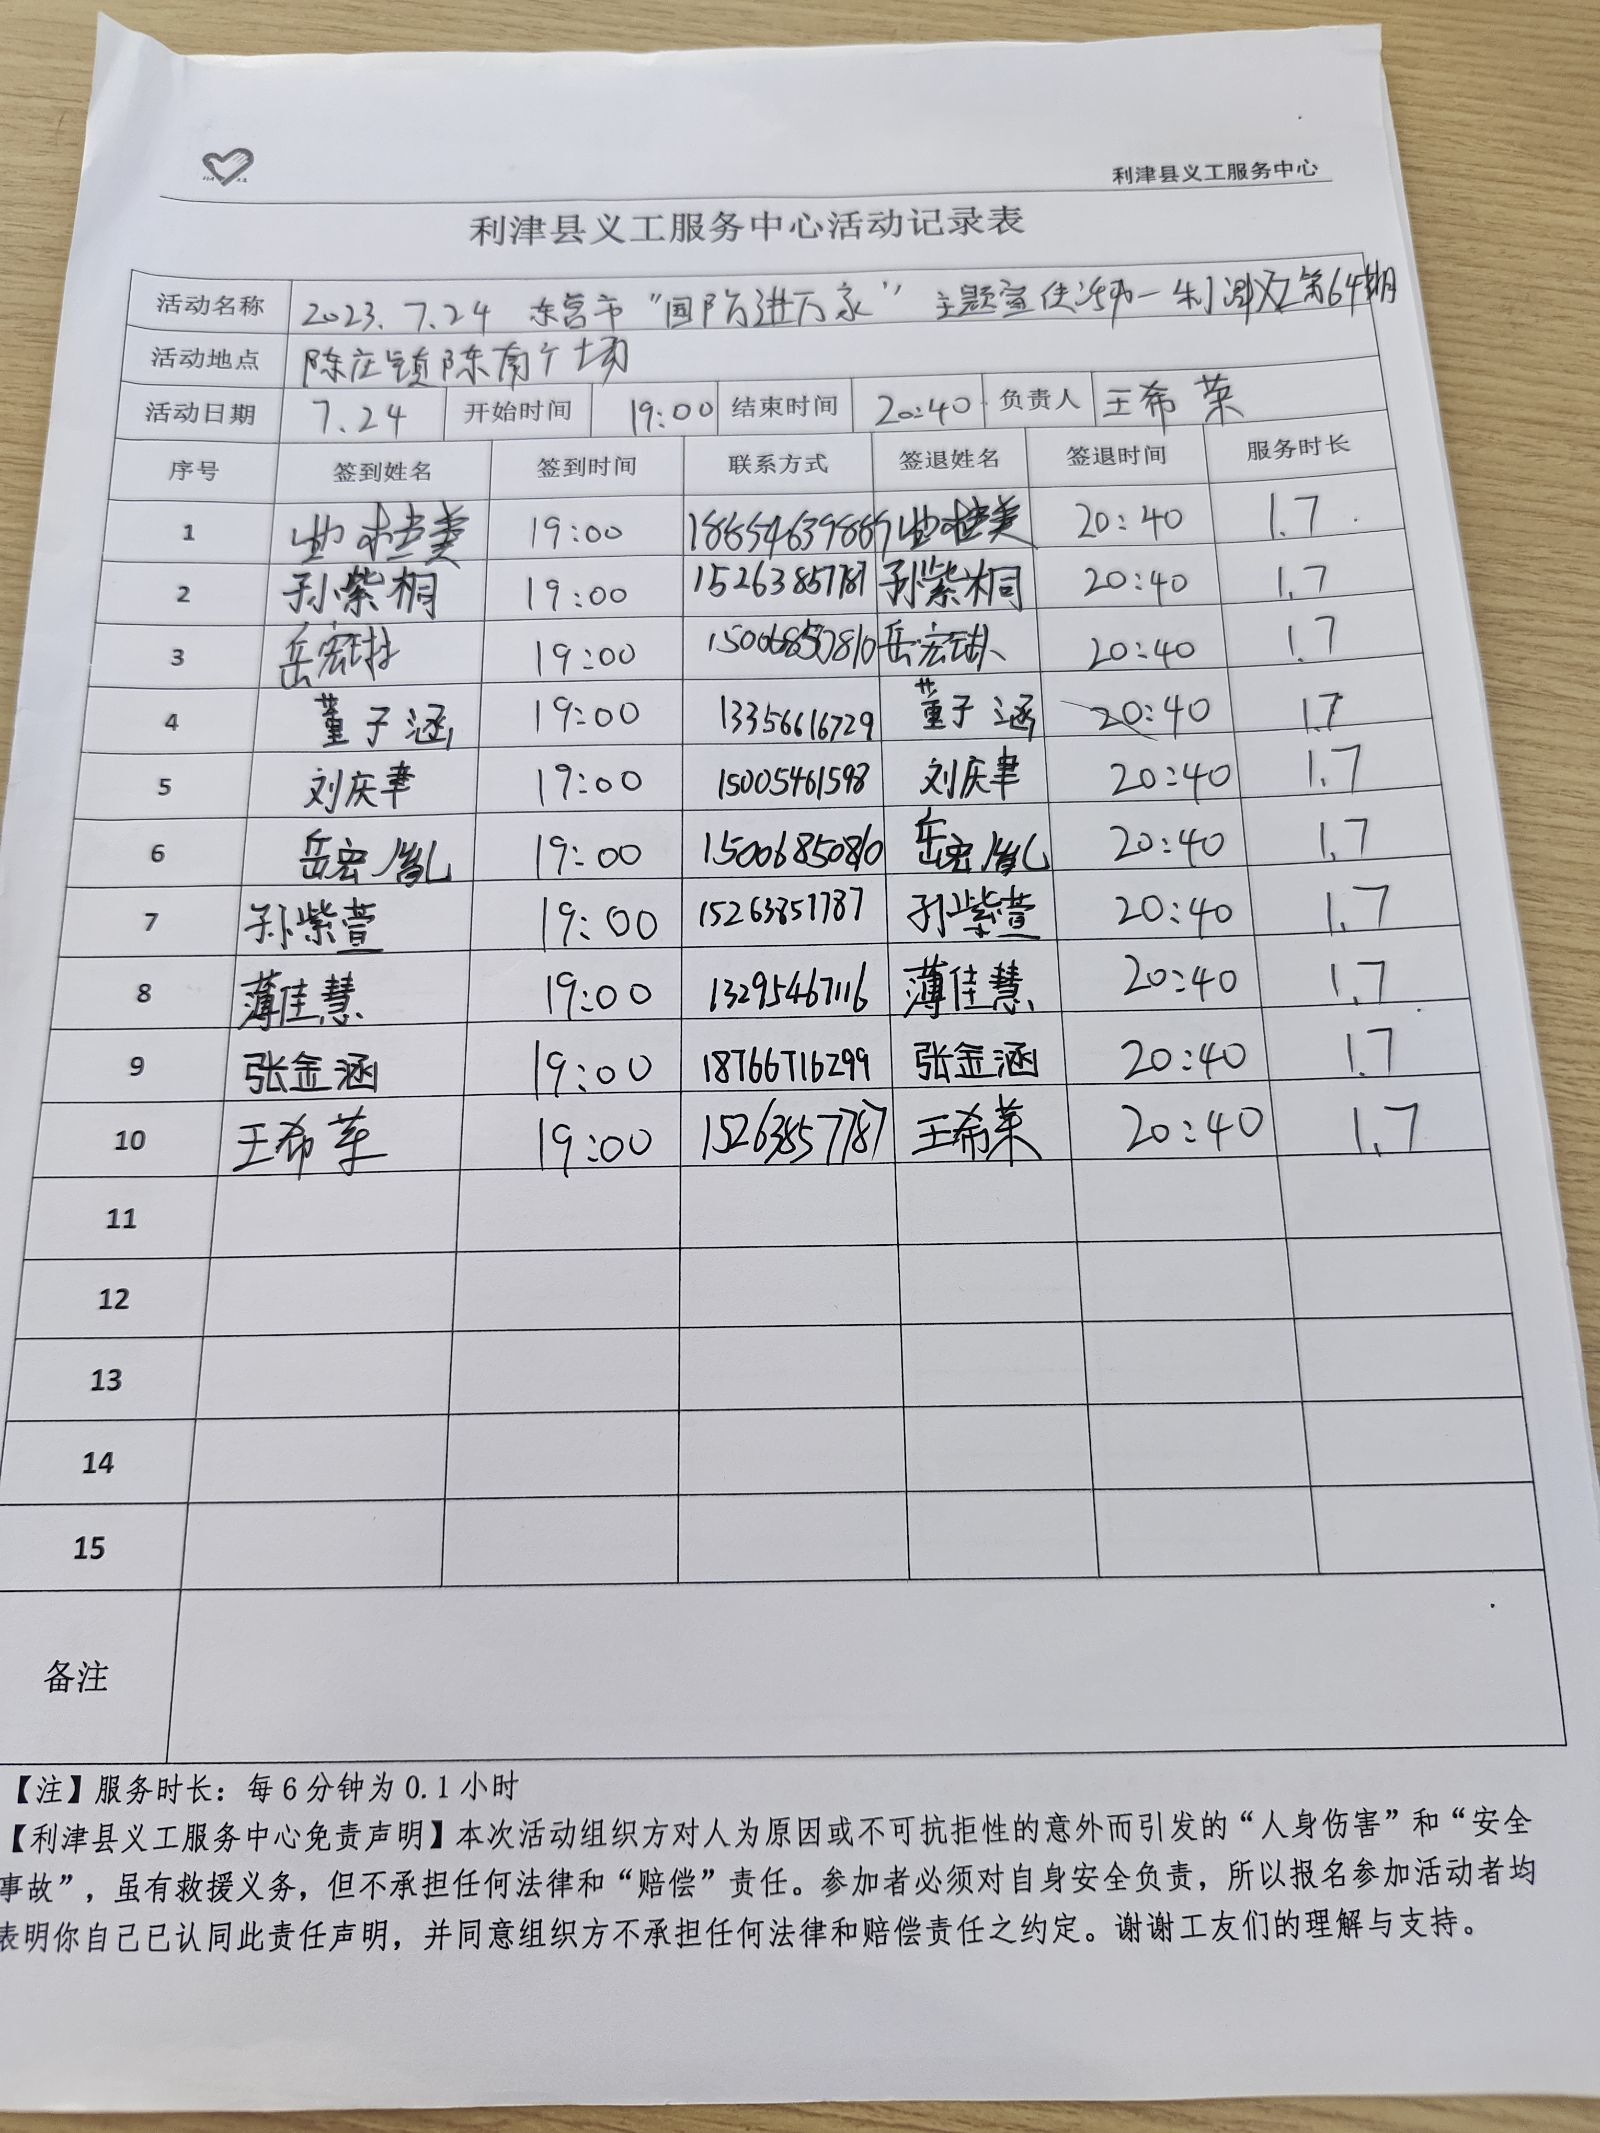 利津县义工服务中心
利津县义工服务中心活动记录表
活动名称 2023.7.24 东营市“国防进万家”主题宣传活动—利津义工第64期
活动地点 陈庄镇陈南广场
活动日期 7.24 开始时间 19:00 结束时间 20:40 负责人 王希荣
序号 签到姓名 签到时间 联系方式 签退姓名 签退时间 服务时长
1 19:00 18654639889 20:40 1.7
2 孙紫桐 19:00 15263857787 孙紫桐 20:40 1.7
3 岳宏 19:00 岳宏 20:40 1.7
4 董子涵 19:00 13356616729 董子涵 20:40 1.7
5 刘庆聿 19:00 15005461598 刘庆聿 20:40 1.7
6 岳宏胤 19:00 15006850810 岳宏胤 20:40 1.7
7 孙紫萱 19:00 15263857787 孙紫萱 20:40 1.7
8 薄佳慧 19:00 13295467116 薄佳慧 20:40 1.7
9 张金涵 19:00 18766716299 张金涵 20:40 1.7
10 王希荣 19:00 15263857787 王希荣 20:40 1.7
11
12
13
14
15
备注
【注】服务时长：每6分钟为0.1小时
【利津县义工服务中心免责声明】本次活动组织方对人为原因或不可抗拒性的意外而引发的“人身伤害”和“安全
事故”，虽有救援义务，但不承担任何法律和“赔偿”责任。参加者必须对自身安全负责，所以报名参加活动者均
表明你自己已认同此责任声明，并同意组织方不承担任何法律和赔偿责任之约定。谢谢工友们的理解与支持。